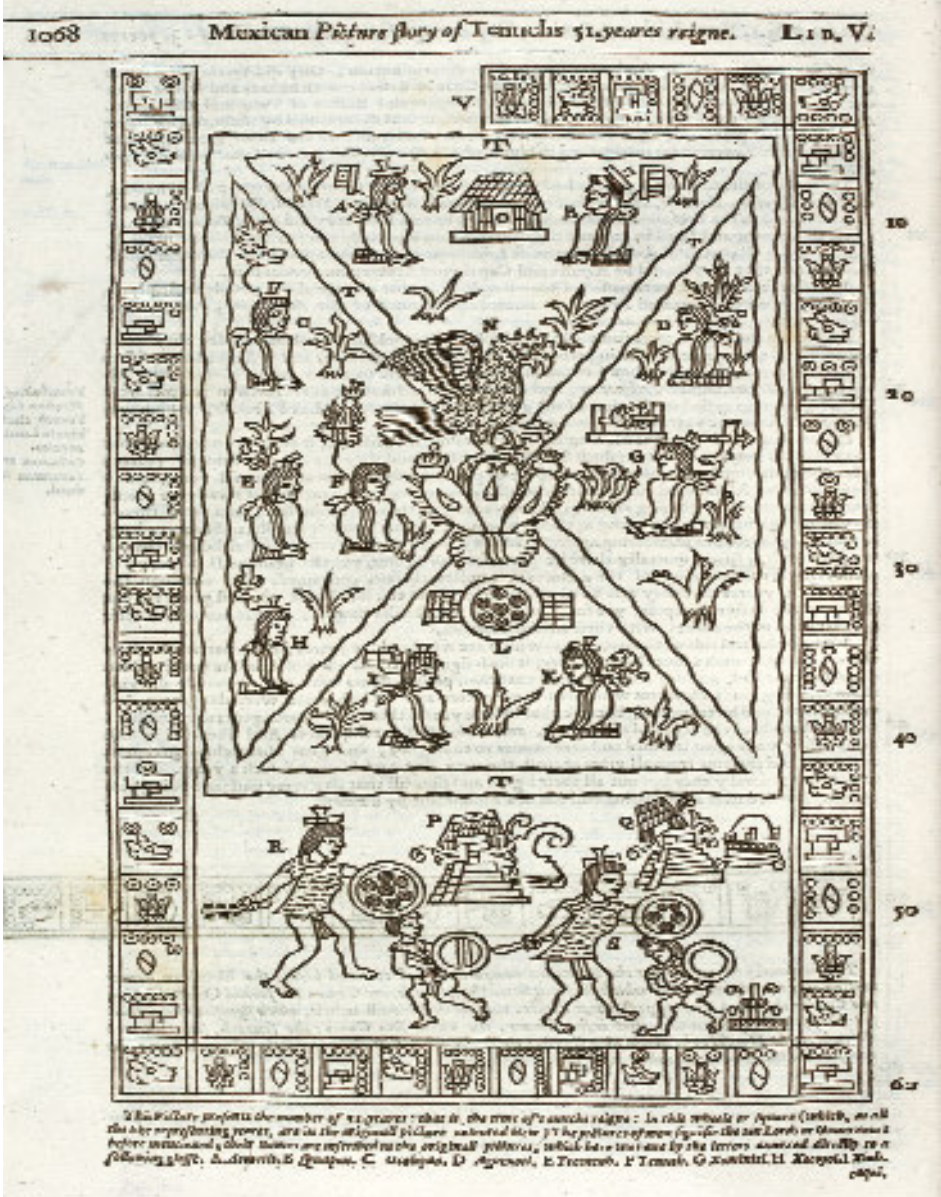 1068 Mexican Picture story of Tenuchs 51. yeares reigne. LIB. V.
V
T
A B
10
T
T
C N D
20
M G
E F
30
H L
I K
40
T
P Q
R
50
S
62
This Picture presents the number of 51 yeares: that is, the time of Tenuchs reigne: In this wheele or square (which, as all
the like representing yeares, are in the originall picture coloured blew) The pictures of men signifie the ten Lords or Governours
before mentioned; their names are inscribed in the originall pictures, which here we have by the letters annexed directly to a
following glosse. A. Acacitli, B Quapan, C Ocelopan, D Aguexotl, E Tecineuh, F Tenuch, G Xominitl, H Xocoyol, I Xiuh-
caqui,